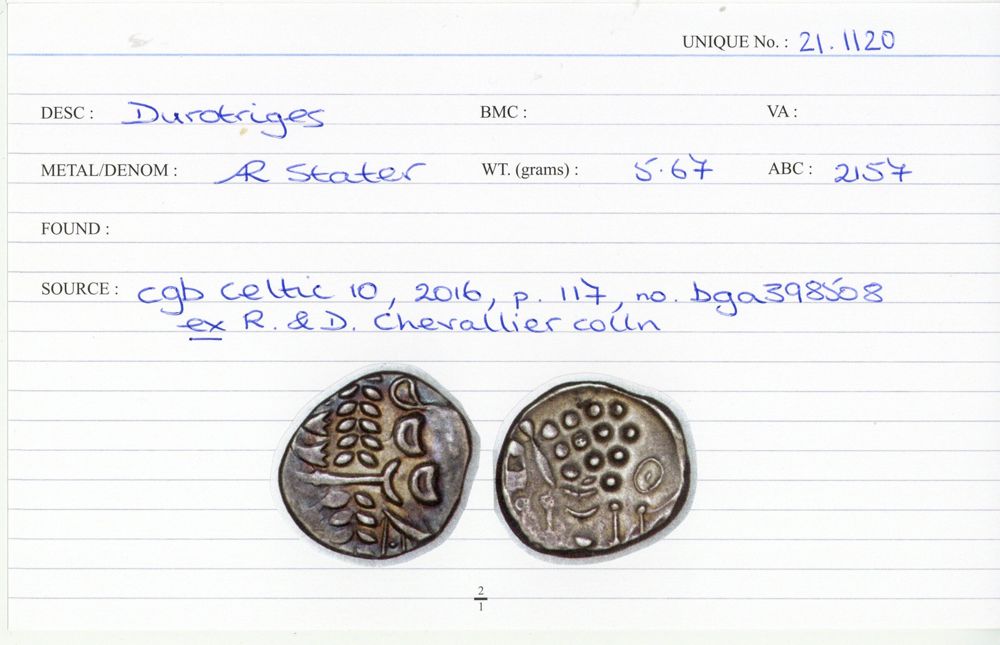 UNIQUE No. : 21.1120
DESC : Durotriges BMC : VA :
METAL/DENOM : AR Stater WT. (grams) : 5.67 ABC : 2157
FOUND :
SOURCE : cgb Celtic 10, 2016, p. 117, no. bga398508
ex R. & D. Chevallier colln
2
1